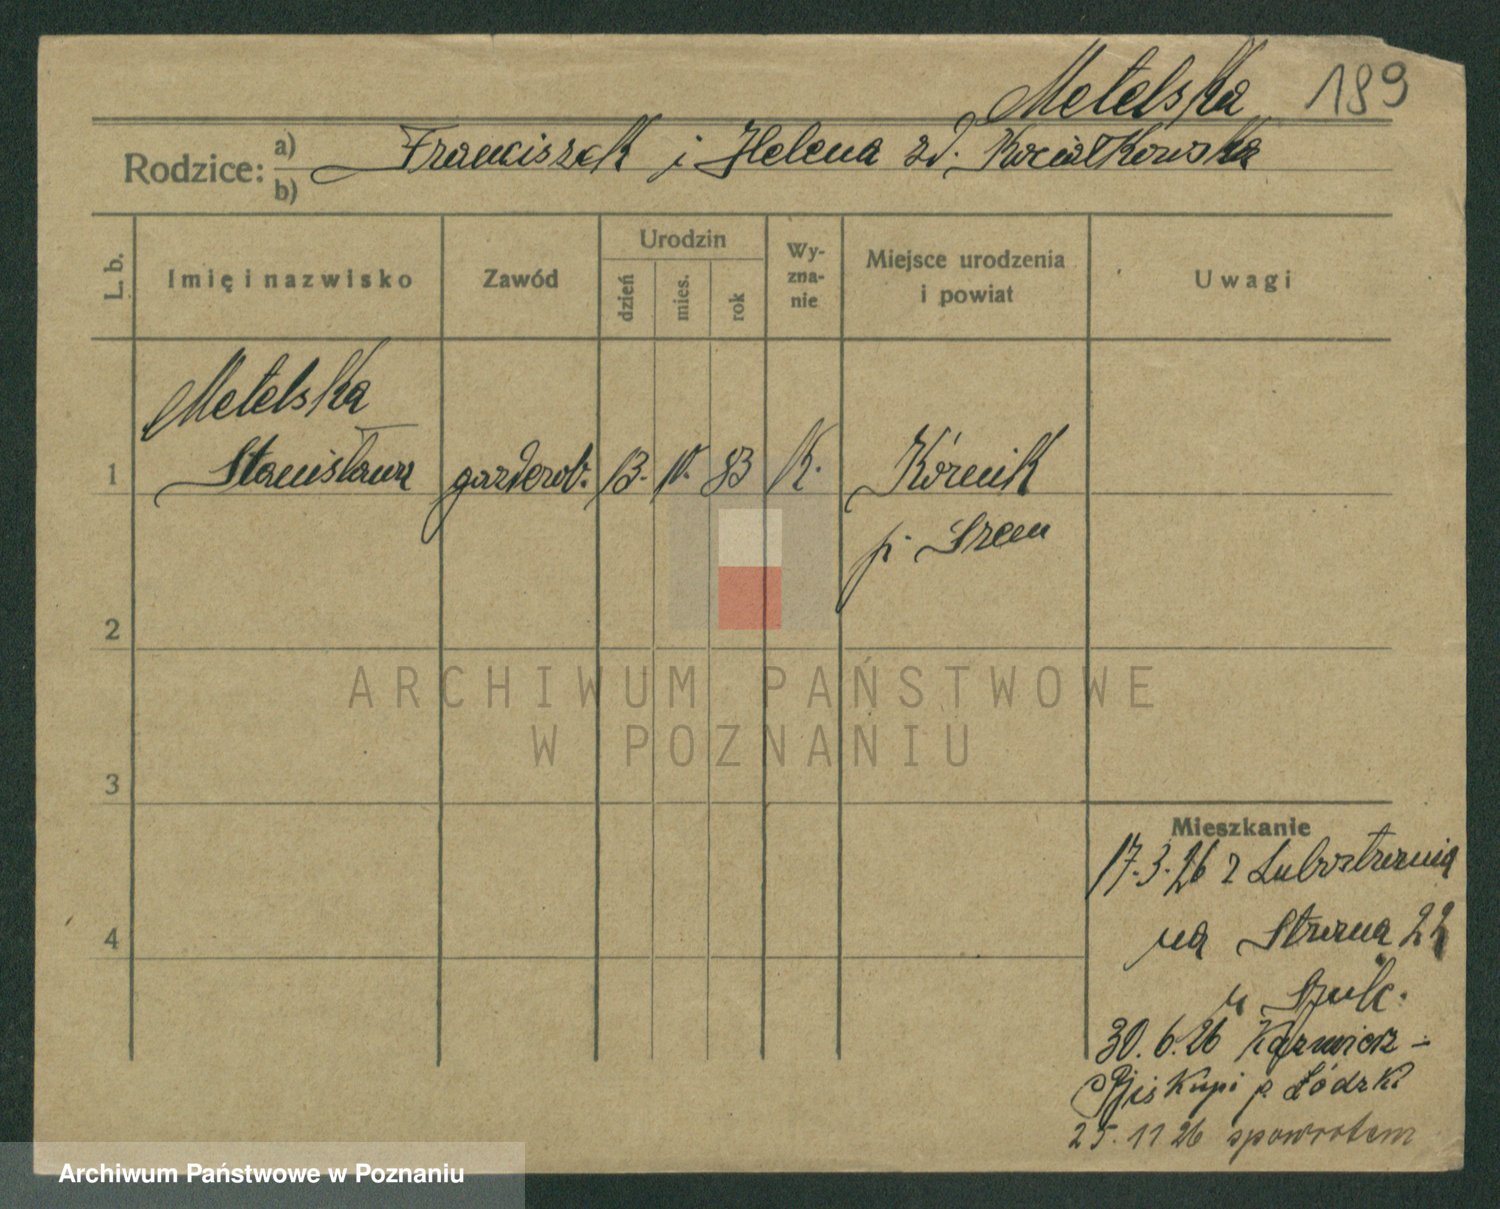 Metelska 189
Rodzice: a) Franciszek i Helena zd. Kociałkowska
b)
L. b. Imię i nazwisko Zawód Urodzin dzień mies. rok Wy-zna-nie Miejsce urodzenia i powiat Uwagi
Metelska
1 Stanisława garderob. 13. IV. 83 K. Kórnik
p. Śrem
2
ARCHIWUM PAŃSTWOWE
W POZNANIU
3
Mieszkanie
17.3.26 z Lubostronia
4 na Strona 22
u Szulc.
30.6.26 Kazmierz -
Bjiskupi p. Łódzk.
25.11 26 spowrotem
Archiwum Państwowe w Poznaniu